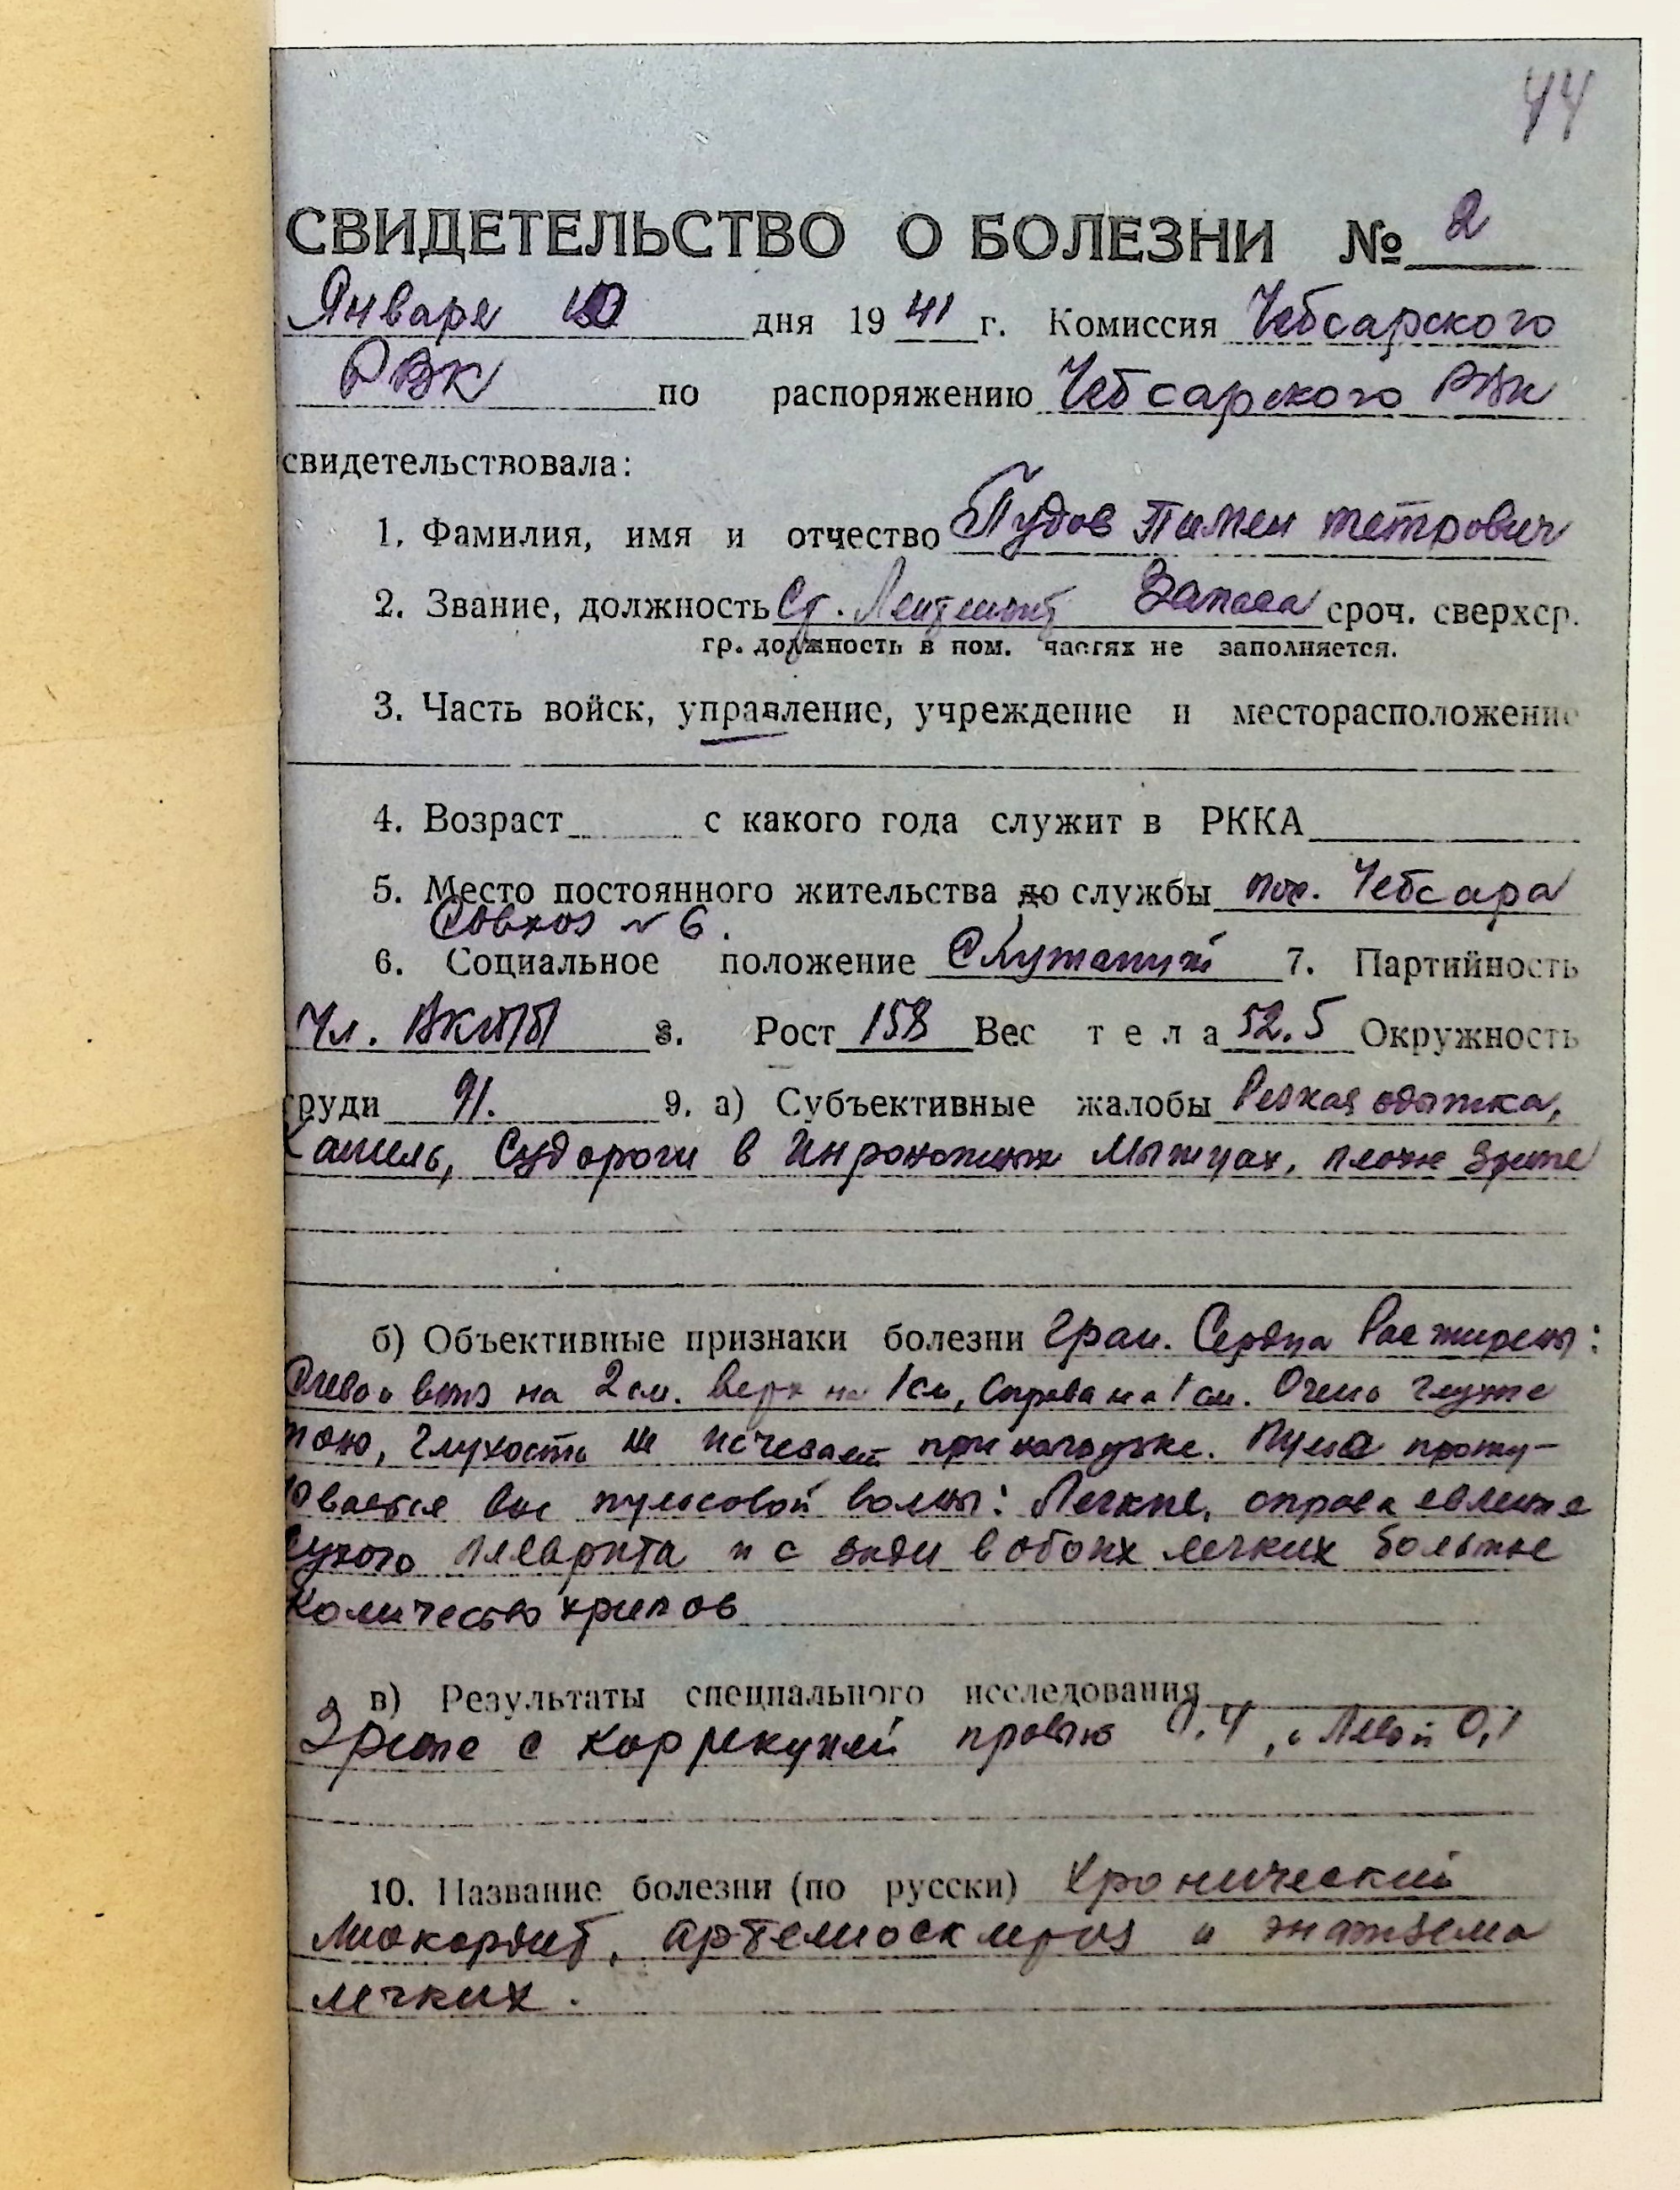 44
СВИДЕТЕЛЬСТВО О БОЛЕЗНИ № 2
Января 10 дня 19 41 г. Комиссия Чебсарского
РВК по распоряжению Чебсарского РВК
свидетельствовала:
1. Фамилия, имя и отчество Пудов Пимен Петрович
2. Звание, должность Ст. Лейтенант Запаса сроч. сверхср.
гр. должность в ном. частях не заполняется.
3. Часть войск, управление, учреждение и месторасположение
4. Возраст с какого года служит в РККА
5. Место постоянного жительства до службы пос. Чебсара
Совхоз № 6.
6. Социальное положение Служащий 7. Партийность
Чл. ВКПб 8. Рост 158 Вес тела 52.5 Окружность
груди 91. 9. а) Субъективные жалобы Резкая одышка,
Кашель, Судороги в Икроножных Мышцах, плохое Зрение
б) Объективные признаки болезни Гран. Сердца Расширены:
влево на 2 см. Верх на 1 см, Справа на 1 см. Очень глухие
тоны, глухость не исчезает при нагрузке. Пульс
пульсовой волны: Легкие, справа явление
сухого плеврита и с зади в обоих легких большое
Количество хрипов
в) Результаты специального исследования
Зрение с коррекцией правою 0.4, Левой 0,1
10. Название болезни (по русски) Хронический
Миокардит, артериосклероз и эмфизема
легких.